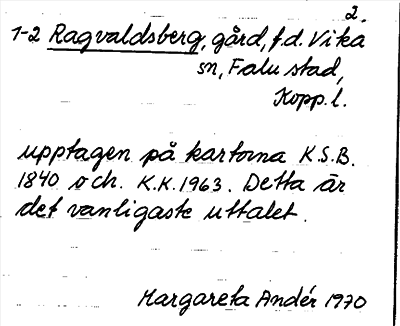 2.
1-2 Ragvaldsberg, gård, f.d. Vika
sn, Falu stad,
Kopp. l.
upptagen på kartorna K.S.B.
1840 och. K.K. 1963. Detta är
det vanligaste uttalet.
Margareta Andér 1970